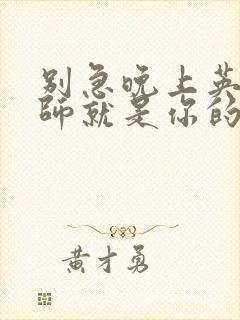 别急晚上英
师就是你的
黄才勇